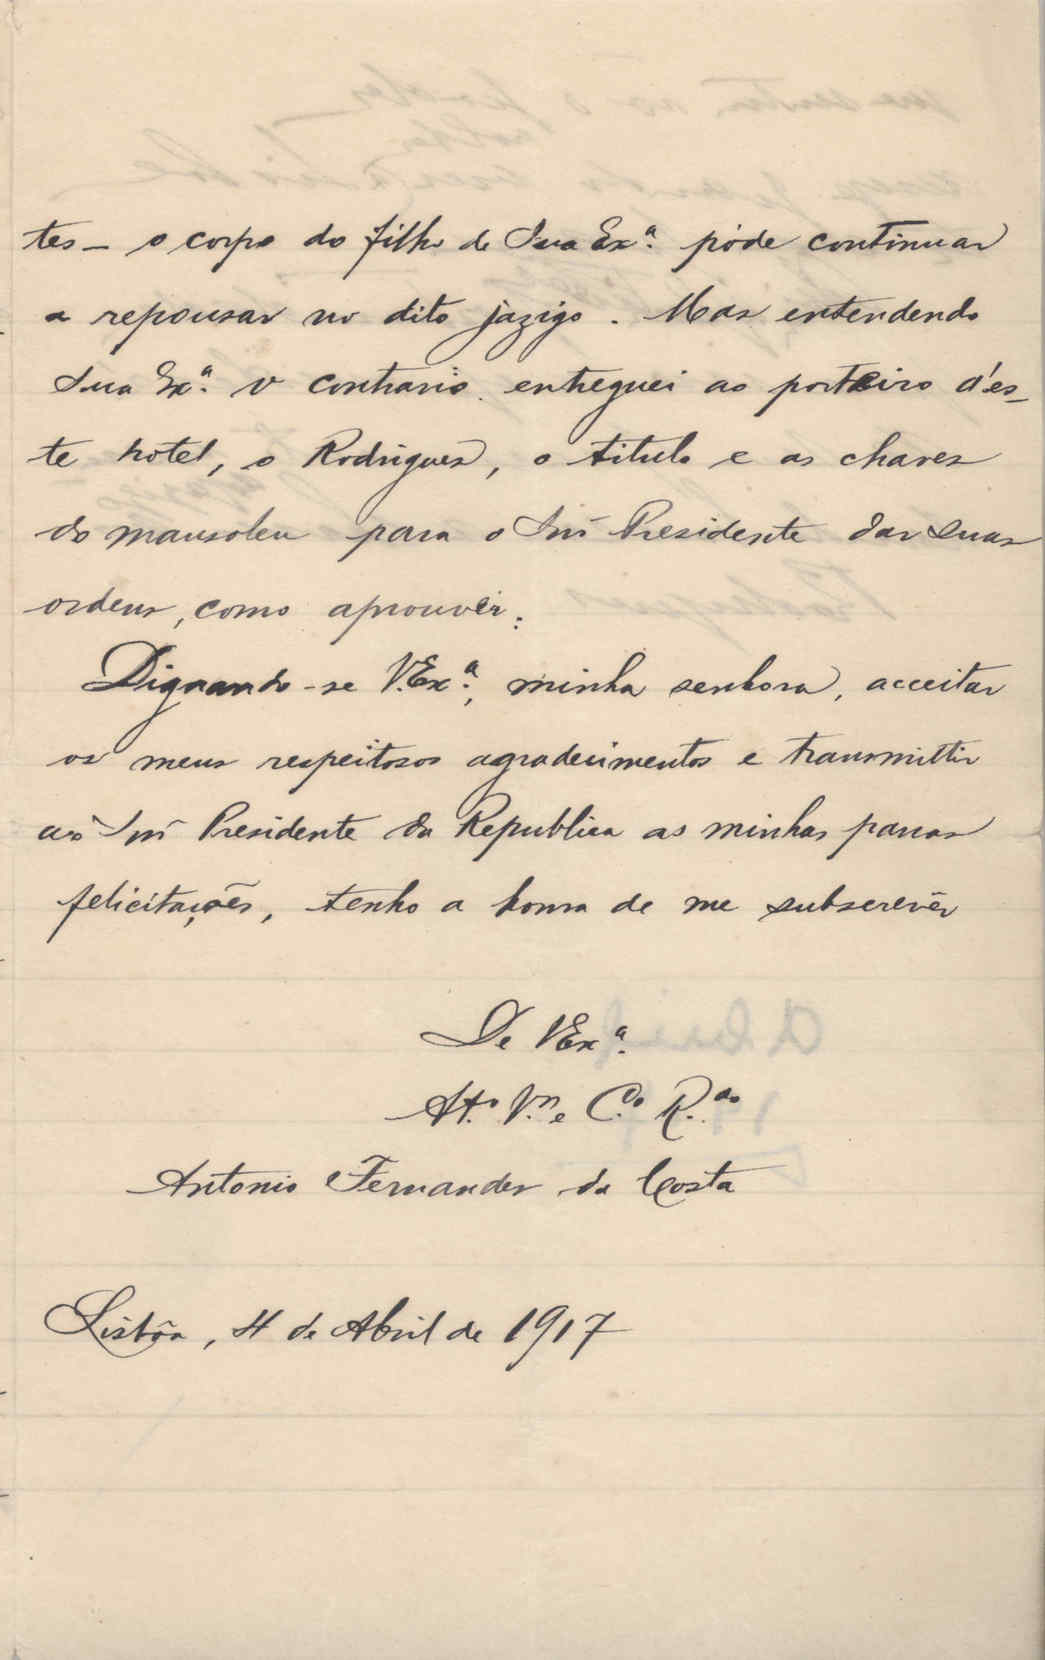 tes — o corpo do filho de Sua Exª. póde continuar
a repousar no dito jazigo. Mas entendendo
Sua Exª. o contrario, entreguei ao porteiro d'es-
te hotel, o Rodrigues, o titulo e as chaves
do mausoleu para o Snr Presidente dar suas
ordens, como aprouvér.
Dignando-se V. Exª., minha senhora, acceitar
os meus respeitosos agradecimentos e transmittir
ao Snr Presidente da Republica as minhas
felicitações, tenho a honra de me subscrevêr
De V Exª.
Att.º V.ºr e C.º R.do
Antonio Fernandes da Costa
Lisbôa, 4 de Abril de 1917